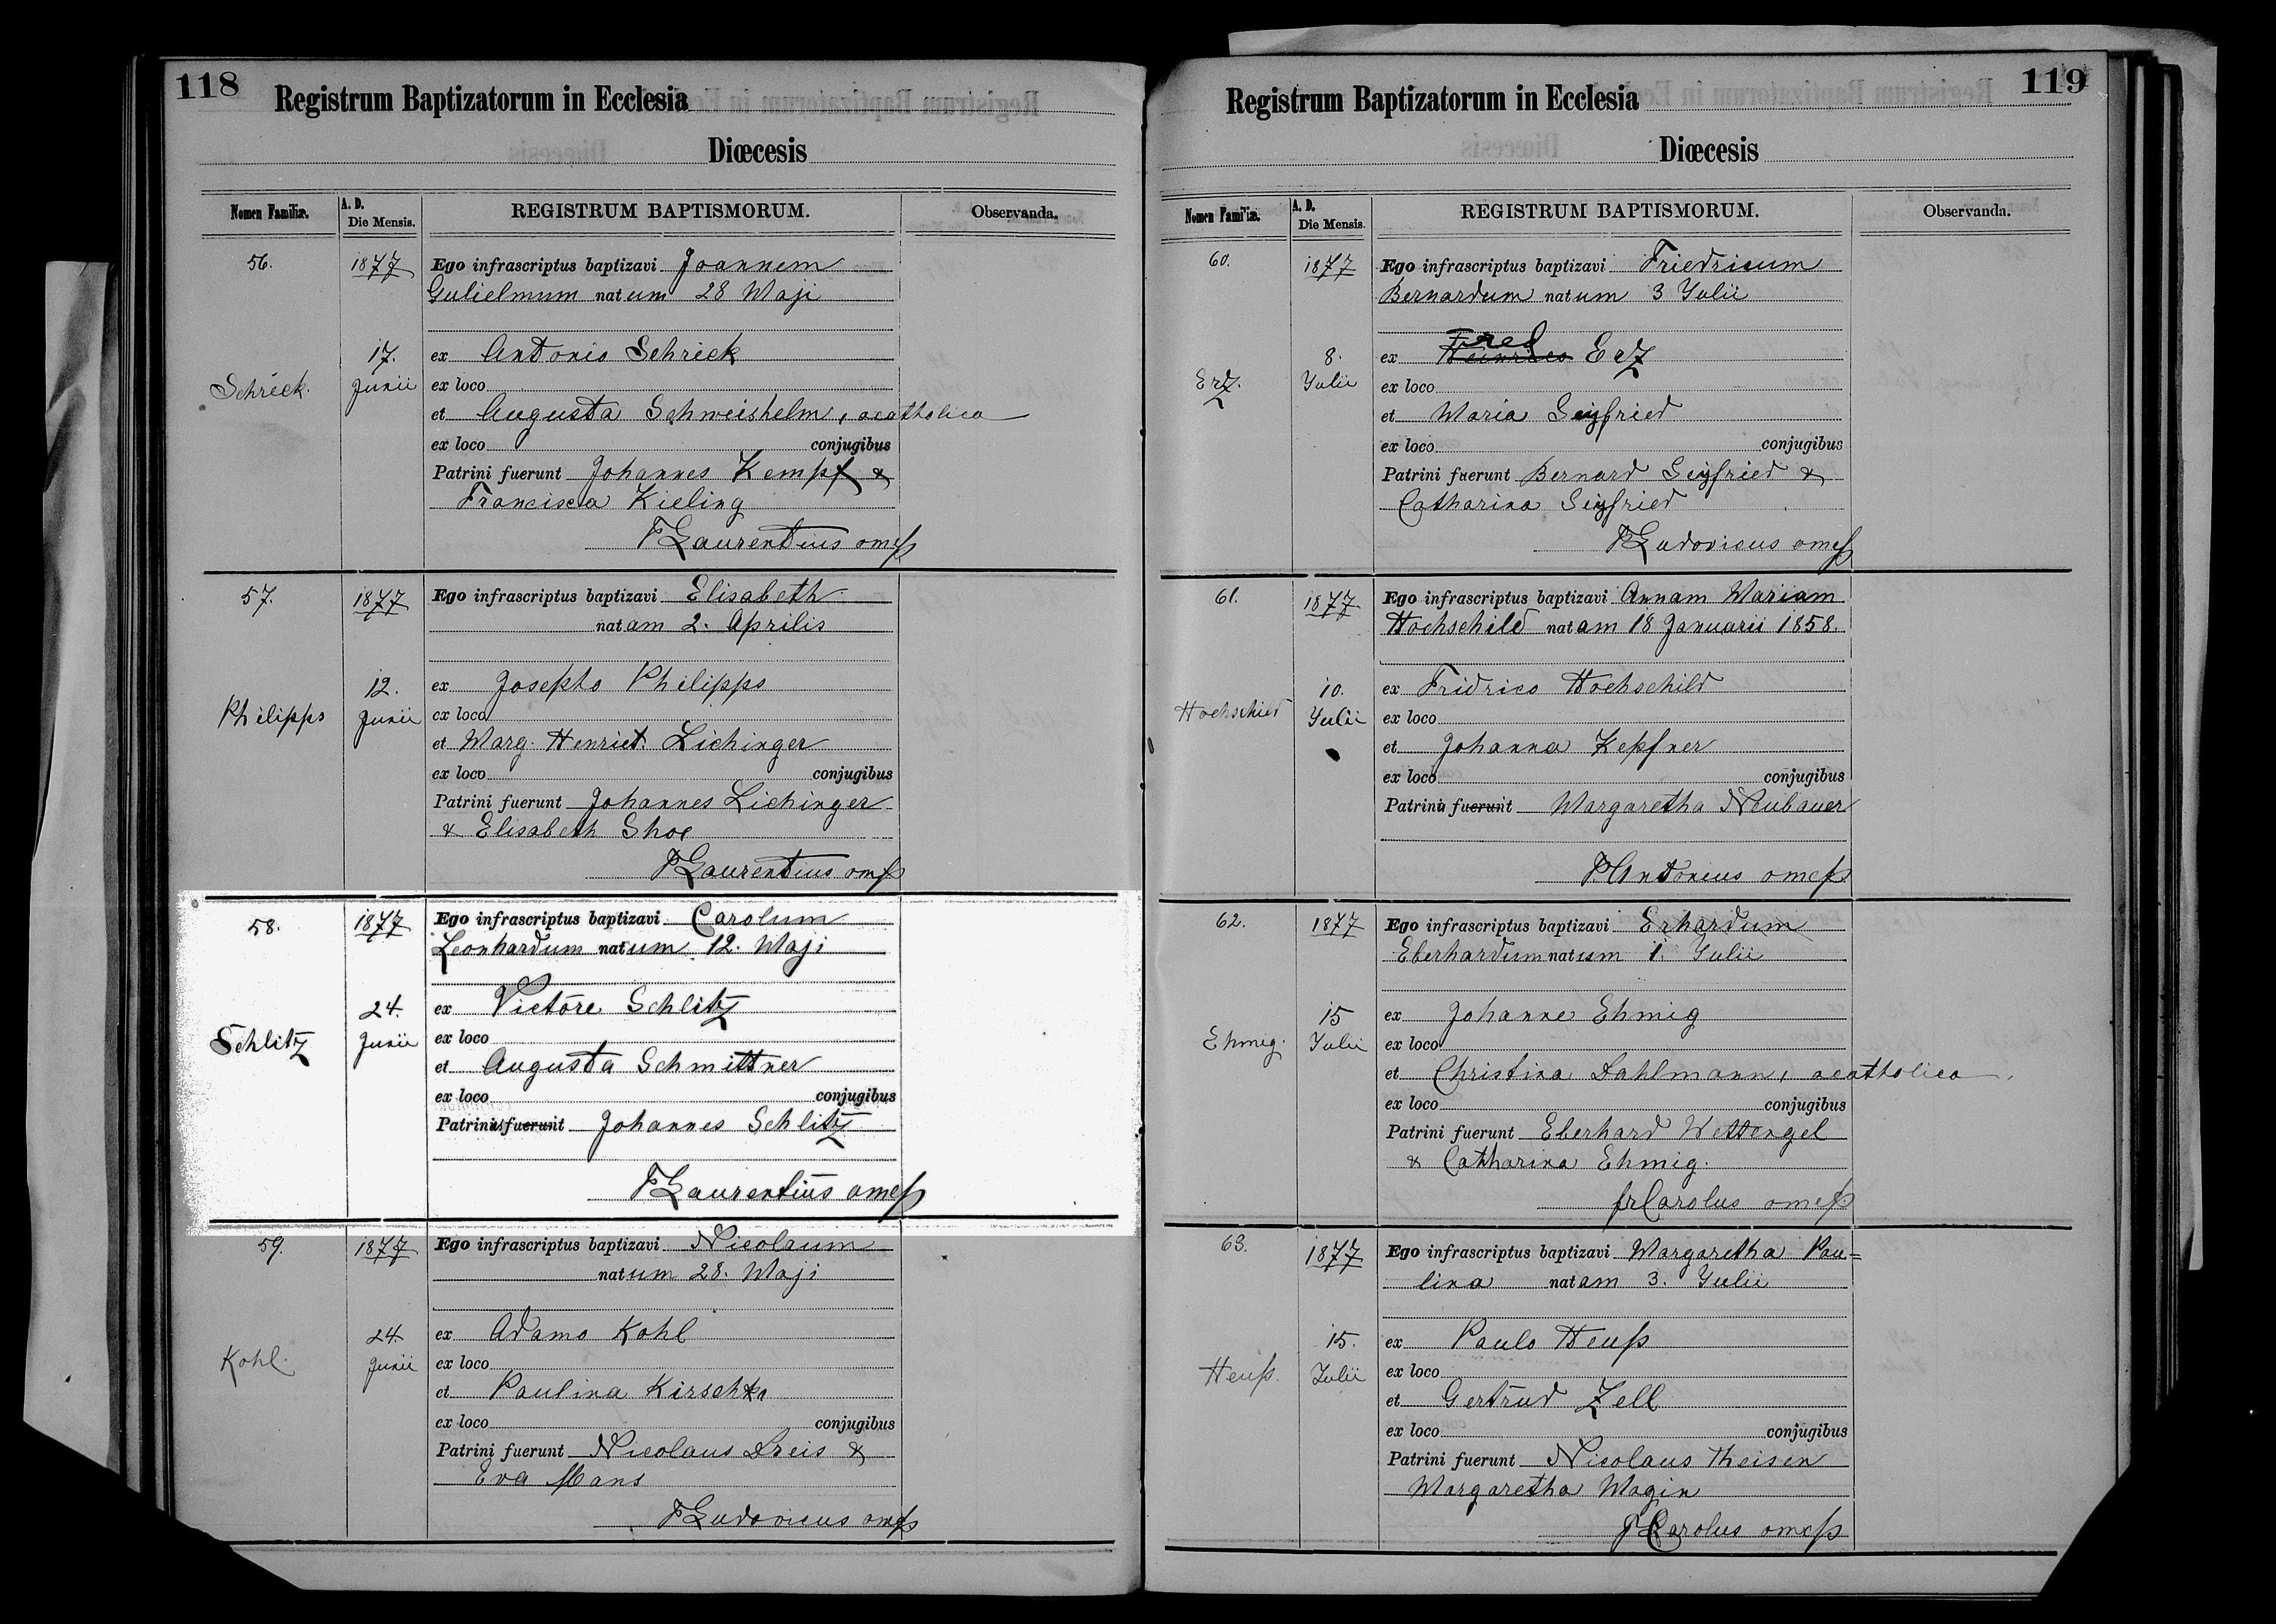 118
Registrum Baptizatorum in Ecclesia
Diœcesis
Nomen Familiæ.
A. D.
Die Mensis.
REGISTRUM BAPTISMORUM.
Observanda.
56.
1877
Ego infrascriptus baptizavi Joannem
Gulielmum natum 28 Maji
17.
Junii
Schrick.
ex Antonio Schrick
ex loco
et Augusta Schweishelm, acatholica
ex loco conjugibus
Patrini fuerunt Johannes Kempf &
Francisca Kieling
P Laurentius omcp
57.
1877
Ego infrascriptus baptizavi Elisabeth
natam 2. Aprilis
12.
Junii
Philipps
ex Josepho Philipps
ex loco
et Marg. Henriet. Lichinger
ex loco conjugibus
Patrini fuerunt Johannes Lichinger
& Elisabeth Shoe
P Laurentius omcp
58.
1877
Ego infrascriptus baptizavi Carolum
Leonhardum natum 12. Maji
24.
Junii
Schlitz
ex Victore Schlitz
ex loco
et Augusta Schmittner
ex loco conjugibus
Patrinus fuit Johannes Schlitz
P Laurentius omcp
59.
1877
Ego infrascriptus baptizavi Nicolaum
natum 28. Maji
24.
Junii
Kohl.
ex Adamo Kohl
ex loco
et Paulina Kirschka
ex loco conjugibus
Patrini fuerunt Nicolaus Dreis &
Eva Mans
P Ludovicus omcp
119
Registrum Baptizatorum in Ecclesia
Diœcesis
Nomen Familiæ.
A. D.
Die Mensis.
REGISTRUM BAPTISMORUM.
Observanda.
60.
1877
Ego infrascriptus baptizavi Friedricum
Bernardum natum 3 Julii
8.
Julii
Erz.
Fred
ex Heinrico Erz
ex loco
et Maria Seyfried
ex loco conjugibus
Patrini fuerunt Bernard Seyfried &
Catharina Seyfried
P Ludovicus omcp
61.
1877
Ego infrascriptus baptizavi Annam Mariam
Hochschild natam 18 Januarii 1858.
10.
Julii
Hochschild
ex Fridrico Hochschild
ex loco
et Johanna Kepfner
ex loco conjugibus
Patrina fuit Margaretha Neubauer
P Antonius omcp
62.
1877
Ego infrascriptus baptizavi Erhardum
Eberhardum natum 1. Julii
15
Julii
Ehmig.
ex Johanne Ehmig
ex loco
et Christina Dahlmann, acatholica
ex loco conjugibus
Patrini fuerunt Eberhard Wettengel
& Catharina Ehmig.
fr Carolus omcp
63.
1877
Ego infrascriptus baptizavi Margaretha Pau=
lina natam 3. Julii
15.
Julii
Heuß.
ex Paulo Heuß
ex loco
et Gertrud Zell
ex loco conjugibus
Patrini fuerunt Nicolaus Theisen
Margaretha Magin
P Carolus omcp